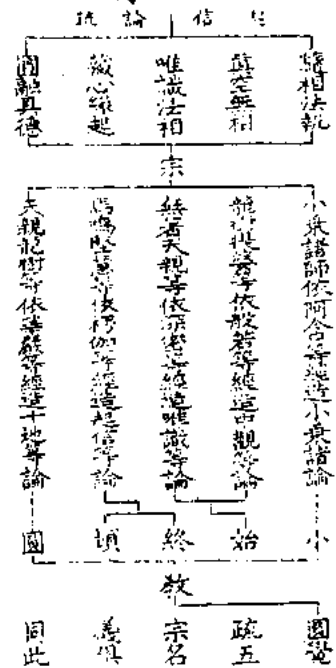 起信論疏
隨相法執
真空無相
唯識法相
藏心緣起
圓融具德
宗
小乘諸師依阿含等經造小乘諸論
龍樹提婆等依般若等經造中觀等論
無著天親等依深密等經造唯識等論
馬鳴堅慧等依楞伽等經造起信等論
天親龍樹等依華嚴等經造十地等論
小
始
終
頓
圓
教
圓覺
疏五
宗名
義俱
同此